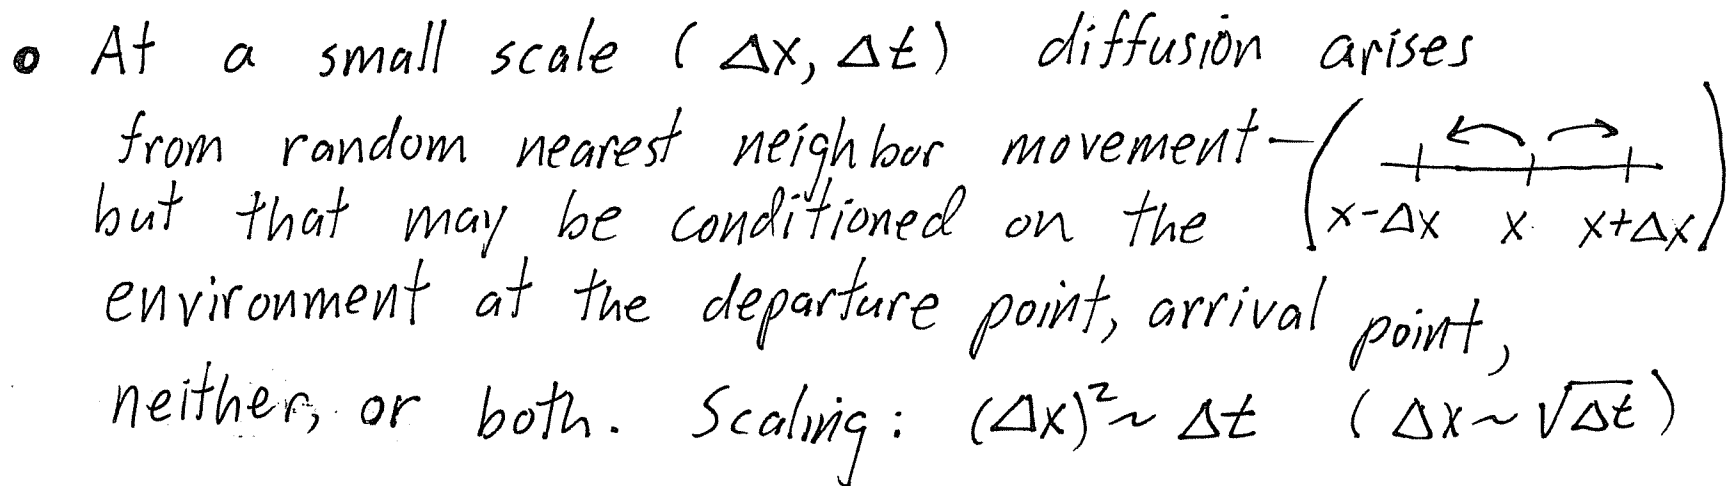 • At a small scale (Δx, Δt) diffusion arises
from random nearest neighbor movement—(
x-Δx x x+Δx)
but that may be conditioned on the
environment at the departure point, arrival point,
neither, or both. Scaling: (Δx)²~ Δt (Δx~√Δt)